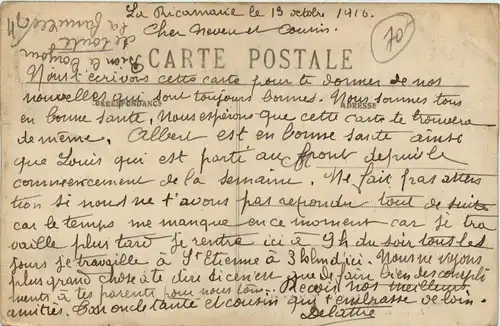 La Ricamarie le 13 octobre 1916.
Cher Neveu et Cousin.
70
Rien le bonjour
de toute
la famille
CARTE POSTALE
CORRESPONDANCE
ADRESSE
Nous t'écrivons cette carte pour te donner de nos
nouvelles qui sont toujours bonnes. Nous sommes tous
en bonne santé, nous espérons que cette carte te trouvera
de même. Albert est en bonne santé ainsi
que Louis qui est parti au front depuis le
commencement de la semaine. Ne fait pas atten
tion si nous ne t'avons pas repondu tout de suite
car le temps me manque en ce moment car je tra
vaille plus tard je rentre ici à 9h du soir tous les
jours je travaille à St Etienne à 3 klm d'ici. Nous ne voyons
plus grand chose à te dire si ce n'en que de faire bien des compli
ments à tes parents pour nous tous. Reçois nos meilleurs
amitiés. Ton oncle tante et cousin qui t'embrasse de loin.
Delattre